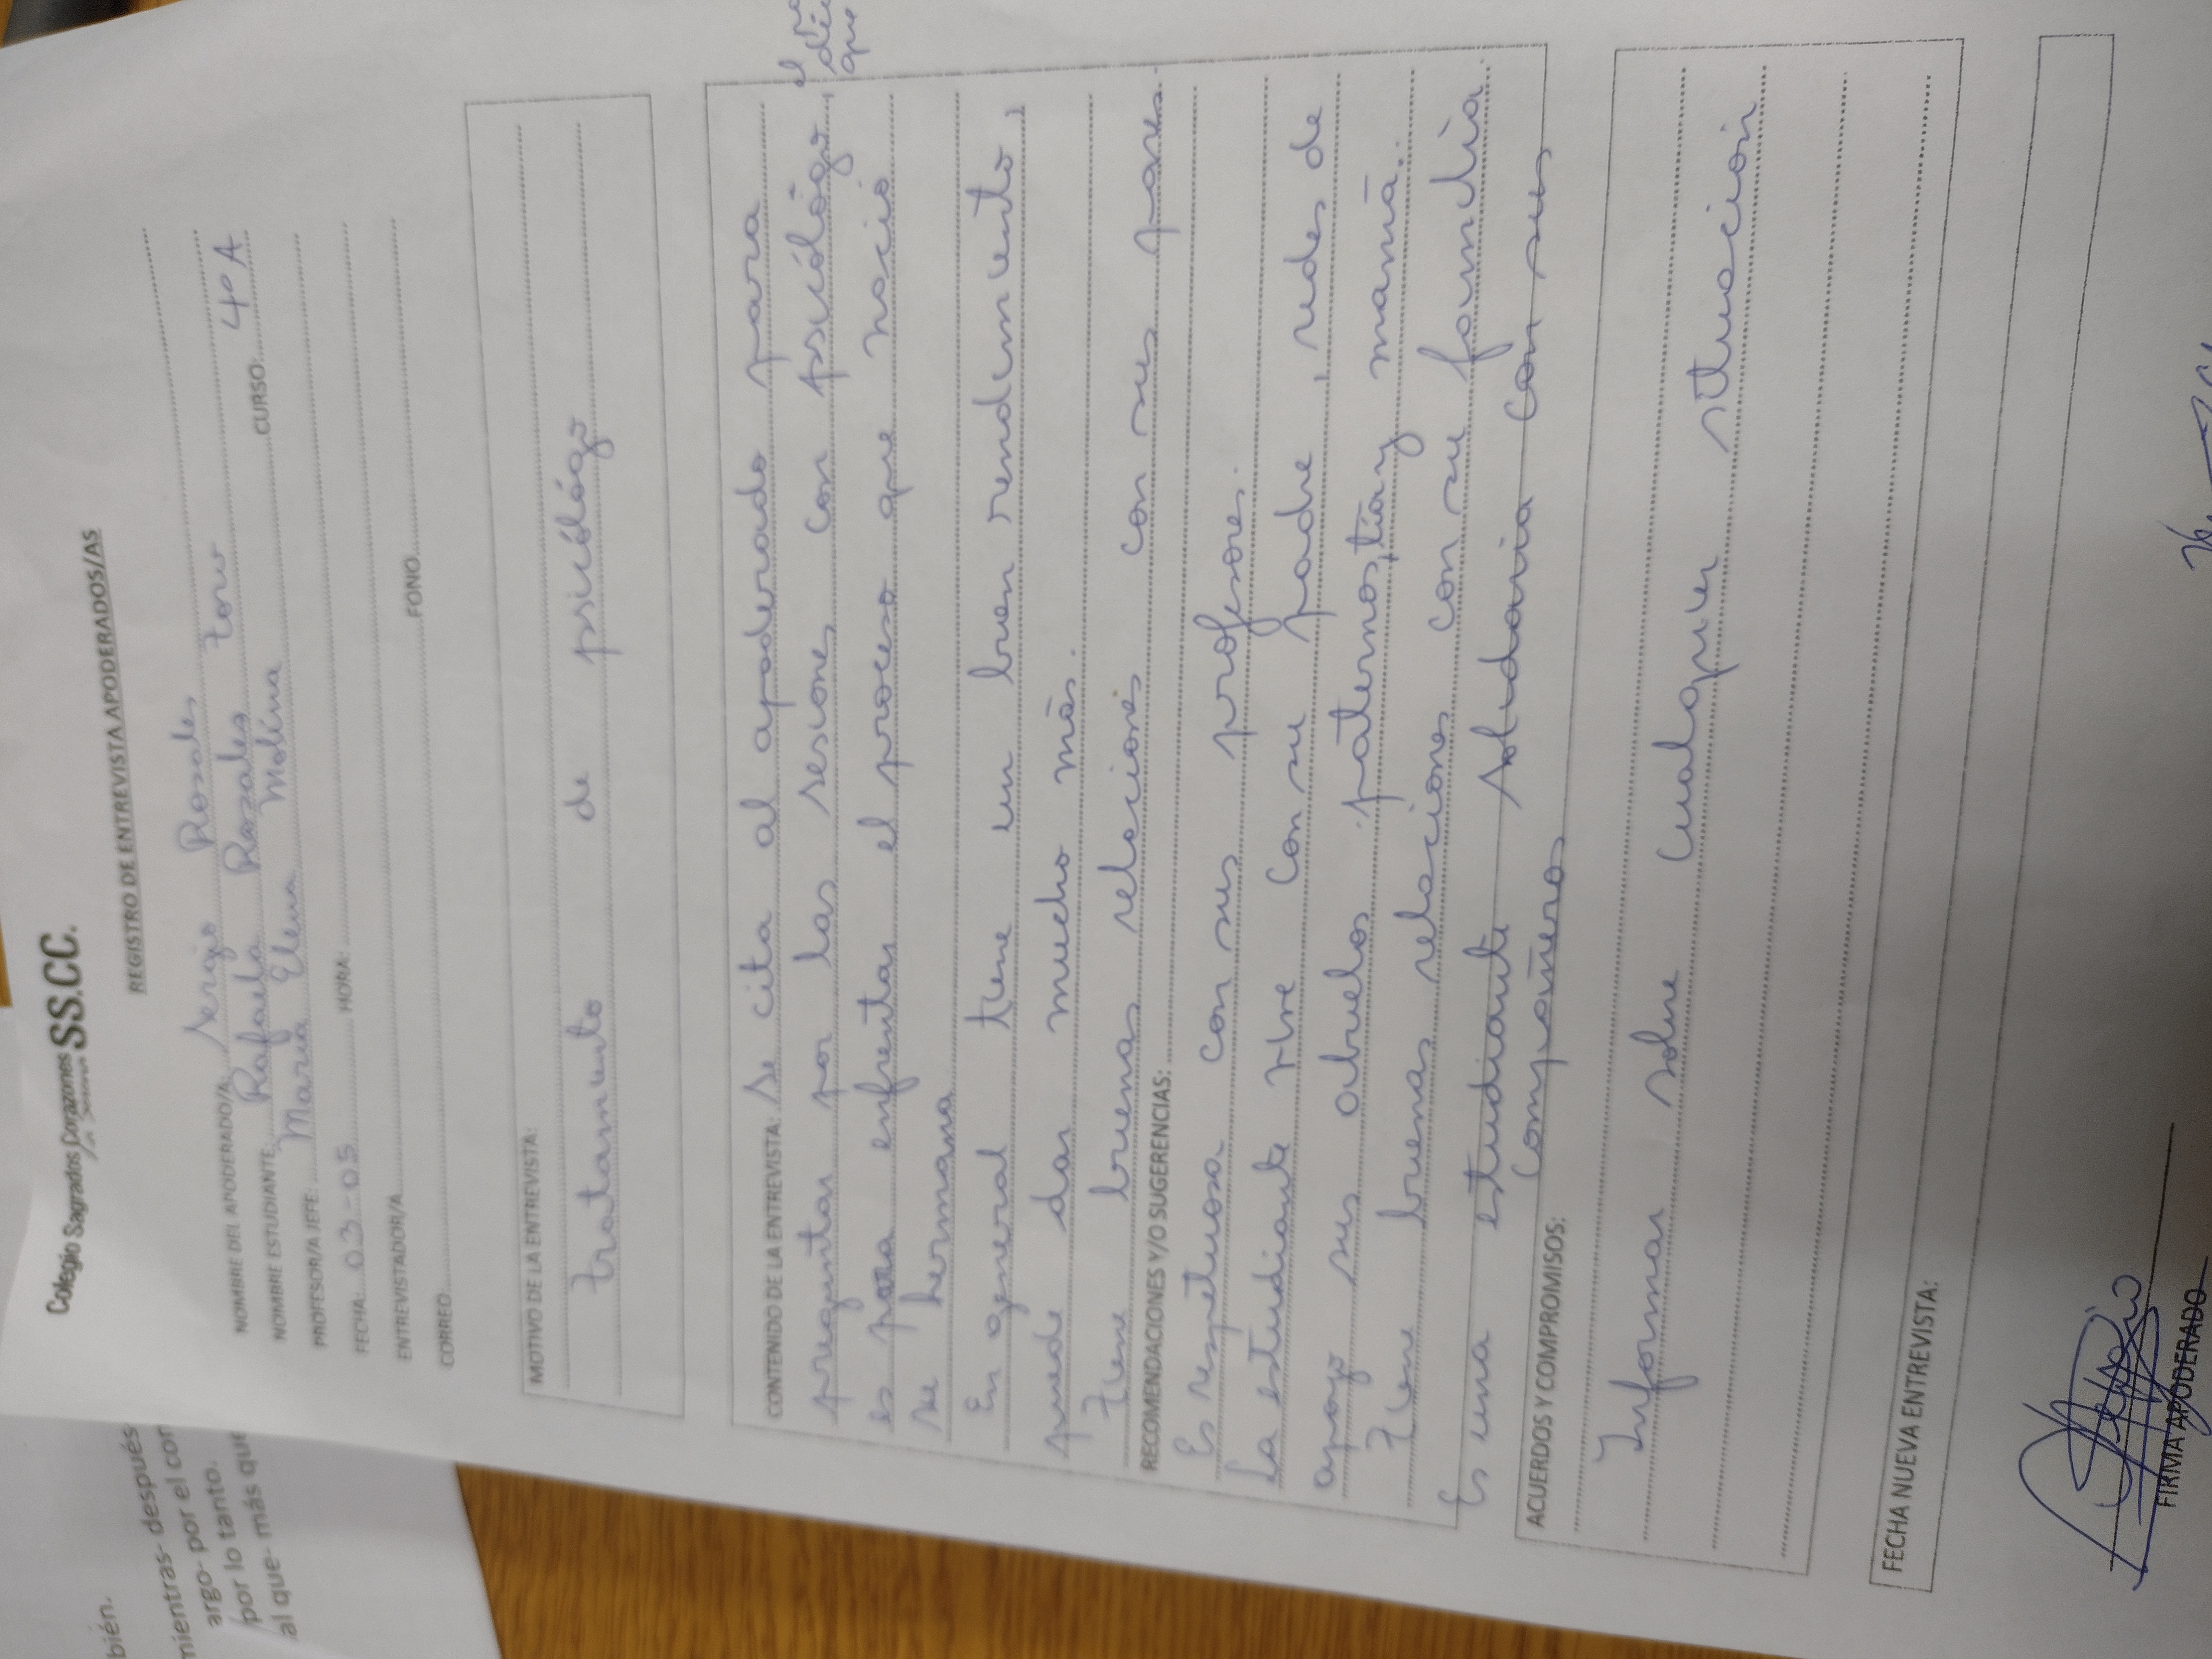 Colegio Sagrados Corazones SS.CC.
REGISTRO DE ENTREVISTA APODERADOS/AS
NOMBRE DEL APODERADO/A: Sergio Rosales
NOMBRE ESTUDIANTE: Rafaela Rosales Toro CURSO: 4º A
PROFESOR/A JEFE: María Elena Molina
FECHA: 03-05 HORA:
ENTREVISTADOR/A
CORREO FONO
MOTIVO DE LA ENTREVISTA:
tratamiento de psicólogo
CONTENIDO DE LA ENTREVISTA: Se cita al apoderado para
preguntar por las sesiones con psicólogo, el
es para enfrentar el proceso que nació
su hermana
En general tiene un buen rendimiento,
puede dar mucho más.
Tiene buenas relaciones con sus pares.
RECOMENDACIONES Y/O SUGERENCIAS:
Es respetuosa con sus profesores.
La estudiante vive con su padre, redes de
apoyo sus abuelos paternos, tía y mamá.
Tiene buenas relaciones con su familia.
Es una estudiante solidaria con sus
compañeros
ACUERDOS Y COMPROMISOS:
Informar sobre cualquier situación
FECHA NUEVA ENTREVISTA:
FIRMA APODERADO
bién.
mientras- después
argo- por el con
por lo tanto.
al que- más que